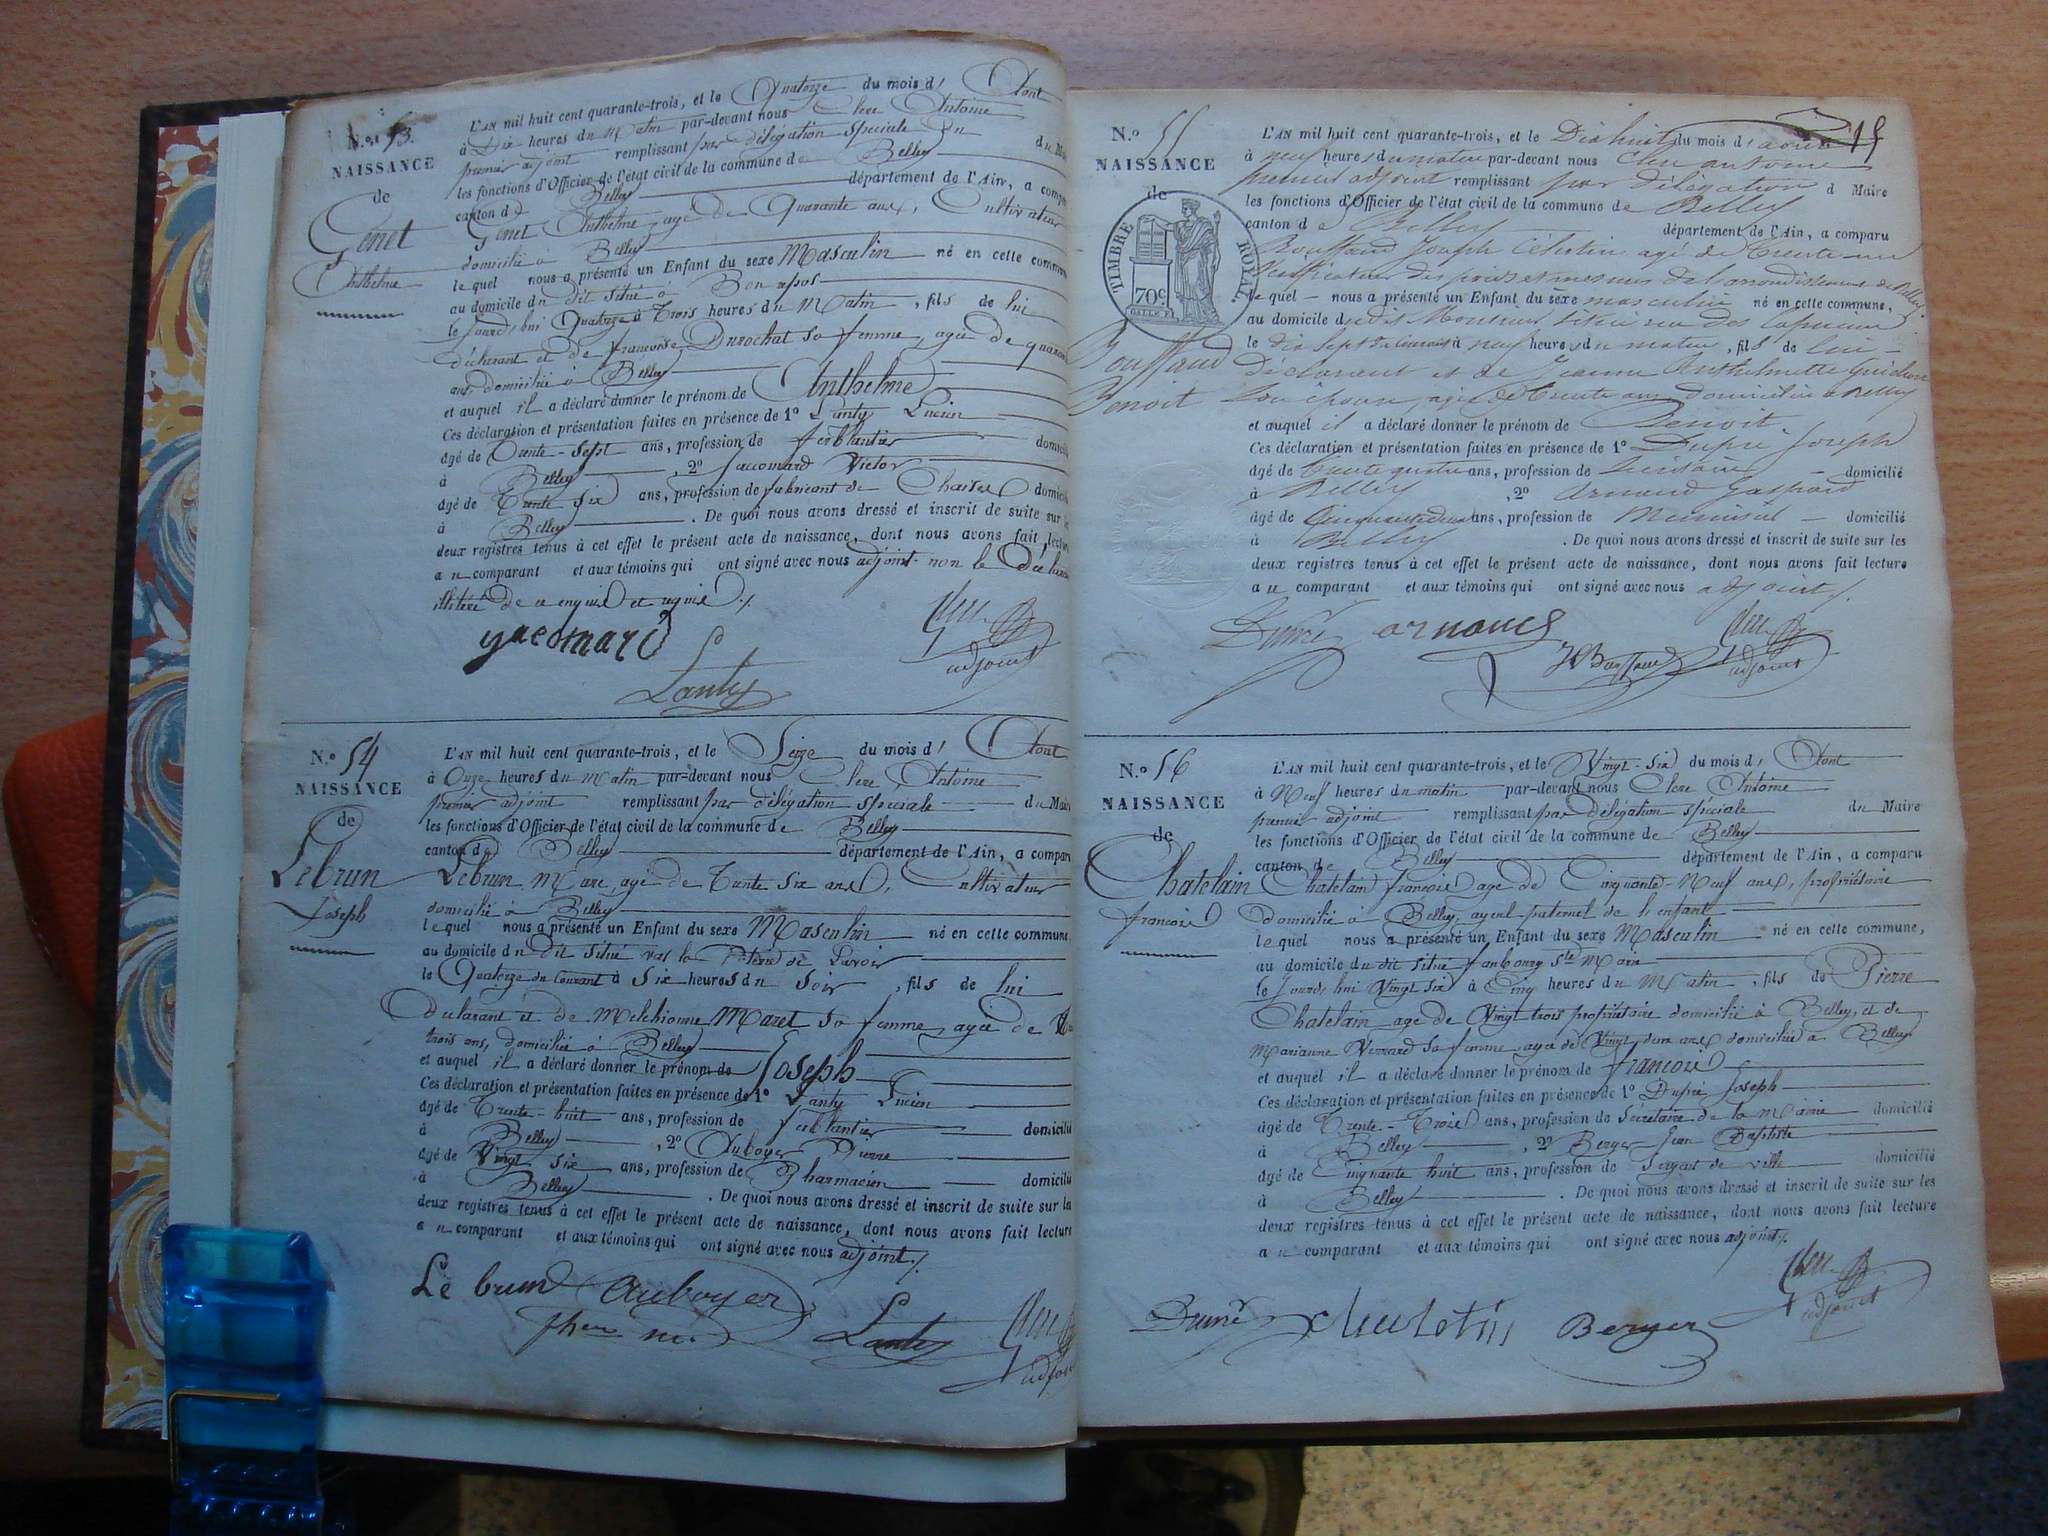 N.o 53.
NAISSANCE
de
Genet
Anthelme
L'AN mil huit cent quarante-trois, et le Quatorze du mois d' Aout
à Dix heures du Matin par-devant nous Clerc Antoine
premier adjoint remplissant par délégation spéciale du Maire
les fonctions d'Officier de l'état civil de la commune de Belley
canton de Belley département de l'Ain, a comparu
Genet Anthelme, agé de Quarante ans, Cultivateur
domicilié à Belley
lequel nous a présenté un Enfant du sexe Masculin né en cette commune
au domicile du dit situé à Bon repos
le Jourd'hui Quatorze à Trois heures du Matin, fils de lui
déclarant et de françoise Durochat sa femme, agée de quarante
ans, domiciliée à Belley
et auquel il a déclaré donner le prénom de Anthelme
Ces déclaration et présentation faites en présence de 1o Lanty Lucien
âgé de Trente-Sept ans, profession de ferblantier domicilié
à Belley, 2o Jaccomard Victor
âgé de Trente six ans, profession de fabricant de Chaises domicilié
à Belley. De quoi nous avons dressé et inscrit de suite sur les
deux registres tenus à cet effet le présent acte de naissance, dont nous avons fait lecture
au comparant et aux témoins qui ont signé avec nous adjoint non le Déclarant
illitéré de ce enquis et requis ./.
Lanty
adjoint
N.o 54
NAISSANCE
de
Lebrun
Joseph
L'AN mil huit cent quarante-trois, et le Seize du mois d' Aout
à Onze heures du Matin par-devant nous Clerc Antoine
premier adjoint remplissant par délégation spéciale du Maire
les fonctions d'Officier de l'état civil de la commune de Belley
canton de Belley département de l'Ain, a comparu
Lebrun Marc, agé de Trente six ans, Cultivateur
domicilié à Belley
lequel nous a présenté un Enfant du sexe Masculin né en cette commune,
au domicile du dit situé
le Quatorze du Courant à Six heures du Soir, fils de lui
Déclarant et de Melchionne Maret sa femme, agée de
trois ans, domiciliée à Belley
et auquel il a déclaré donner le prénom de Joseph
Ces déclaration et présentation faites en présence de 1o Lanty Lucien
âgé de Trente-huit ans, profession de Ferblantier domicilié
à Belley, 2o Auboyer Pierre
âgé de Vingt six ans, profession de Pharmacien domicilié
à Belley. De quoi nous avons dressé et inscrit de suite sur les
deux registres tenus à cet effet le présent acte de naissance, dont nous avons fait lecture
au comparant et aux témoins qui ont signé avec nous adjoint ./.
Le brun Auboyer
Lanty
15
N.o 55
NAISSANCE
de
TIMBRE ROYAL
70c
Bouffand
Benoit
L'AN mil huit cent quarante-trois, et le Dix huit du mois d' aout
à neuf heures du matin par-devant nous Clerc antoine
premier adjoint remplissant par délégation d Maire
les fonctions d'Officier de l'état civil de la commune de Belley
canton de Belley département de l'Ain, a comparu
Bouffand Joseph Célestin agé de Trente un
Vérificateur des poids et mesures de l'arrondissement de Belley
lequel nous a présenté un Enfant du sexe masculin né en cette commune,
au domicile dudit Monsieur situé rue des Capucins
le dix sept du courant à neuf heures du matin, fils de lui
Déclarant et de Jeanne Anthelmette Guichon
son épouse, agée de Trente ans domiciliée à Belley
et auquel il a déclaré donner le prénom de Benoit.
Ces déclaration et présentation faites en présence de 1o Dupré Joseph
âgé de trente quatre ans, profession de domicilié
à Belley, 2o Arnaud Gaspard
âgé de Cinquante deux ans, profession de Menuisier domicilié
à Belley. De quoi nous avons dressé et inscrit de suite sur les
deux registres tenus à cet effet le présent acte de naissance, dont nous avons fait lecture
au comparant et aux témoins qui ont signé avec nous adjoint ./.
Dupré arnaud
adjoint
N.o 56
NAISSANCE
de
Chatelain
françois
L'AN mil huit cent quarante-trois, et le Vingt-six du mois d' Aout
à Neuf heures du matin par-devant nous Clerc Antoine
premier adjoint remplissant par délégation spéciale du Maire
les fonctions d'Officier de l'état civil de la commune de Belley
canton de Belley département de l'Ain, a comparu
Chatelain françois agé de Cinquante-Neuf ans, propriétaire
domicilié à Belley, ayeul paternel de l'enfant
lequel nous a présenté un Enfant du sexe Masculin né en cette commune,
au domicile du dit situé faubourg Ste Marie
le Jourd'hui Vingt six à Cinq heures du Matin, fils de Pierre
Chatelain agé de Vingt trois propriétaire domicilié à Belley, et de
Marianne sa femme agée de Vingt deux ans domiciliée à Belley
et auquel il a déclaré donner le prénom de françois
Ces déclaration et présentation faites en présence de 1o Dupré Joseph
âgé de Trente-Trois ans, profession de Secrétaire de la Mairie domicilié
à Belley, 2o Berger Jean Baptiste
âgé de Cinquante huit ans, profession de Sergent de ville domicilié
à Belley. De quoi nous avons dressé et inscrit de suite sur les
deux registres tenus à cet effet le présent acte de naissance, dont nous avons fait lecture
au comparant et aux témoins qui ont signé avec nous adjoint ./.
Dupré Berger
adjoint